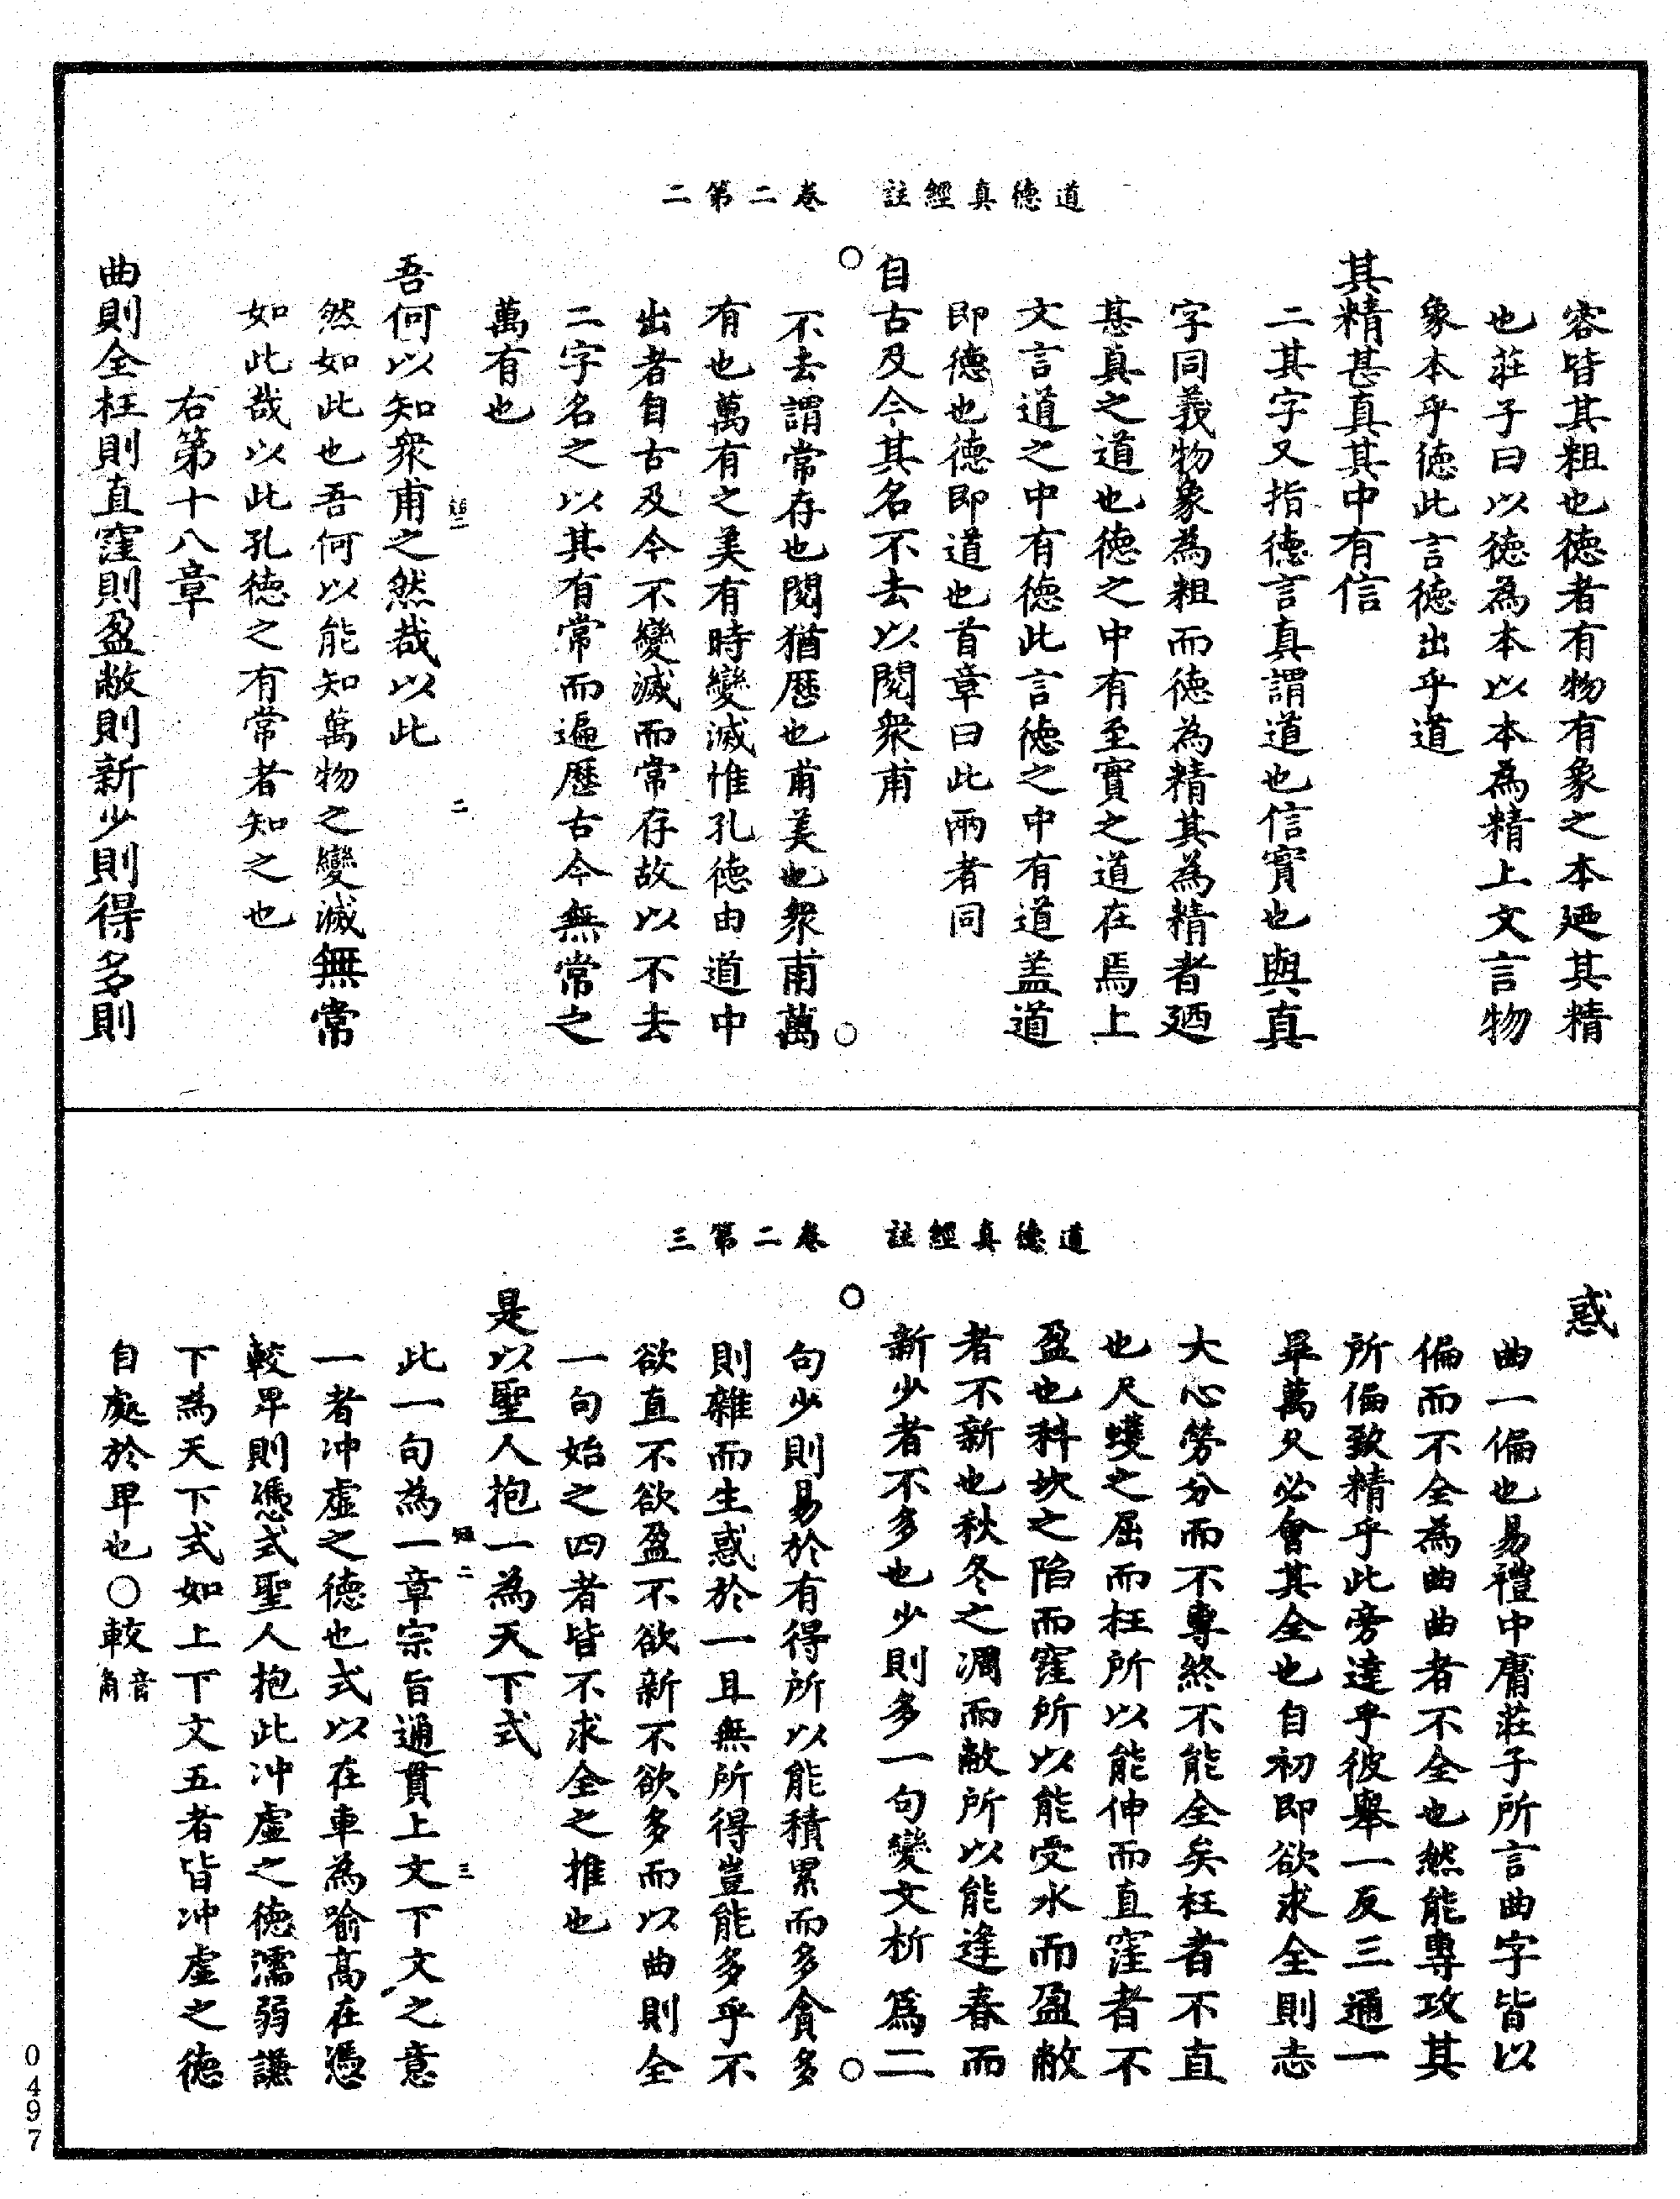 道德真經註　卷二第二
容皆其粗也德者有物有象之本廼其精
也莊子曰以德為本以本為精上文言物
象本乎德此言德出乎道
其精甚真其中有信
二其字又指德言真謂道也信實也與真
字同義物象為粗而德為精其為精者廼
甚真之道也德之中有至實之道在焉上
文言道之中有德此言德之中有道盖道
即德也德即道也首章曰此兩者同
自古及今其名不去以閱衆甫
不去謂常存也閱猶歷也甫美也衆甫萬
有也萬有之美有時變滅惟孔德由道中
出者自古及今不變滅而常存故以不去
二字名之以其有常而遍歷古今無常之
萬有也
吾何以知衆甫之然哉以此
然如此也吾何以能知萬物之變滅無常
如此哉以此孔德之有常者知之也
右第十八章
曲則全枉則直窪則盈敝則新少則得多則
道德真經註　卷二第三
惑
曲一偏也易禮中庸莊子所言曲字皆以
偏而不全為曲曲者不全也然能專攻其
所偏致精乎此旁達乎彼舉一反三通一
畢萬久必會其全也自初即欲求全則志
大心勞分而不專終不能全矣枉者不直
也尺蠖之屈而枉所以能伸而直窪者不
盈也科坎之陷而窪所以能受水而盈敝
者不新也秋冬之凋而敝所以能逢春而
新少者不多也少則多一句變文析為二
句少則易於有得所以能積累而多貪多
則雜而生惑於一且無所得豈能多乎不
欲直不欲盈不欲新不欲多而以曲則全
一句始之四者皆不求全之推也
是以聖人抱一為天下式
此一句為一章宗旨通貫上文下文之意
一者冲虛之德也式以在車為喻高在憑
較卑則憑式聖人抱此冲虛之德濡弱謙
下為天下式如上下文五者皆冲虛之德
自處於卑也○較音角
0497